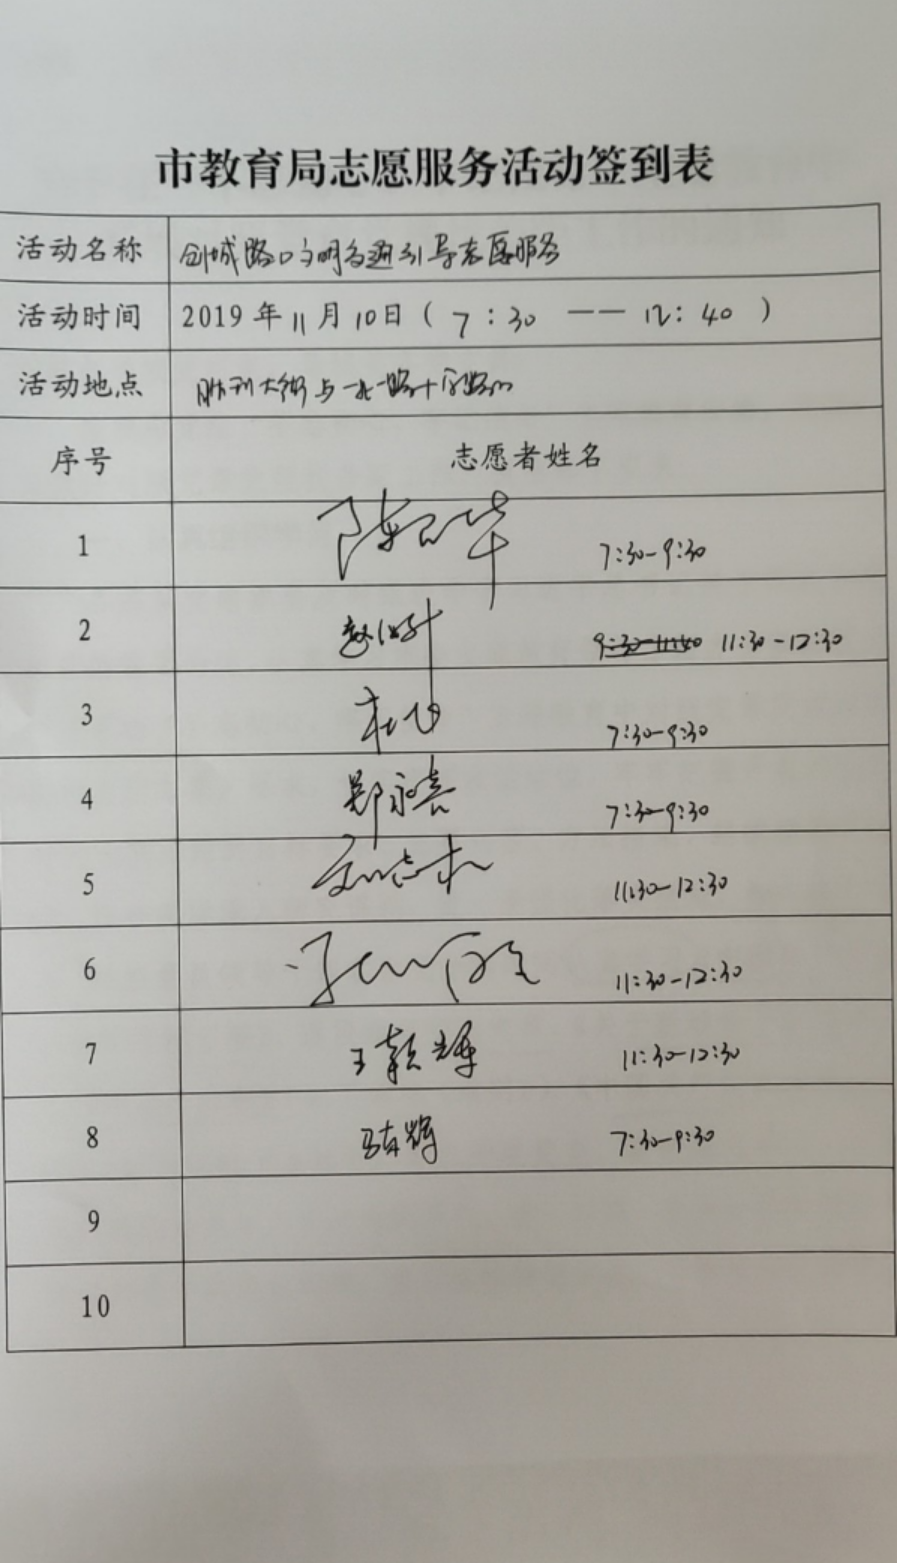 市教育局志愿服务活动签到表
活动名称 创城路口文明交通引导志愿服务
活动时间 2019年11月10日（7:30 —— 12:40）
活动地点 胜利大街与北一路十字路口
序号 志愿者姓名
1 7:30-9:30
2 11:30-12:30
3 7:30-9:30
4 郑永喜 7:30-9:30
5 11:30-12:30
6 11:30-12:30
7 王颖辉 11:30-12:30
8 7:30-9:30
9
10